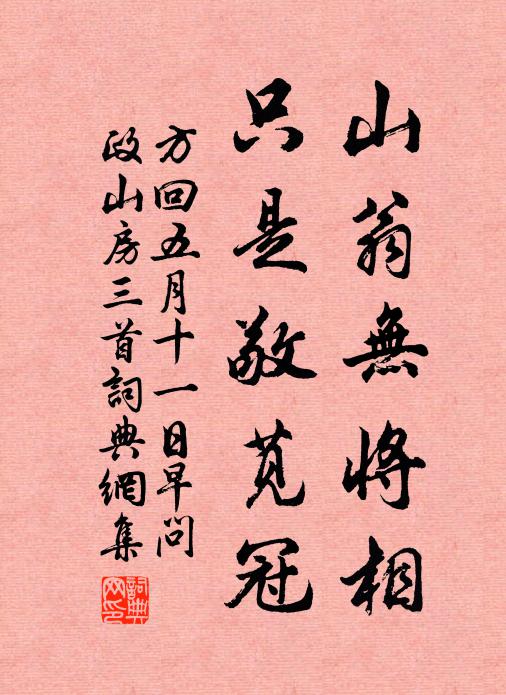 山翁無將相
只是敬萈冠
方回五月十一日早問
政山房三首詞典網集
詞典
网印